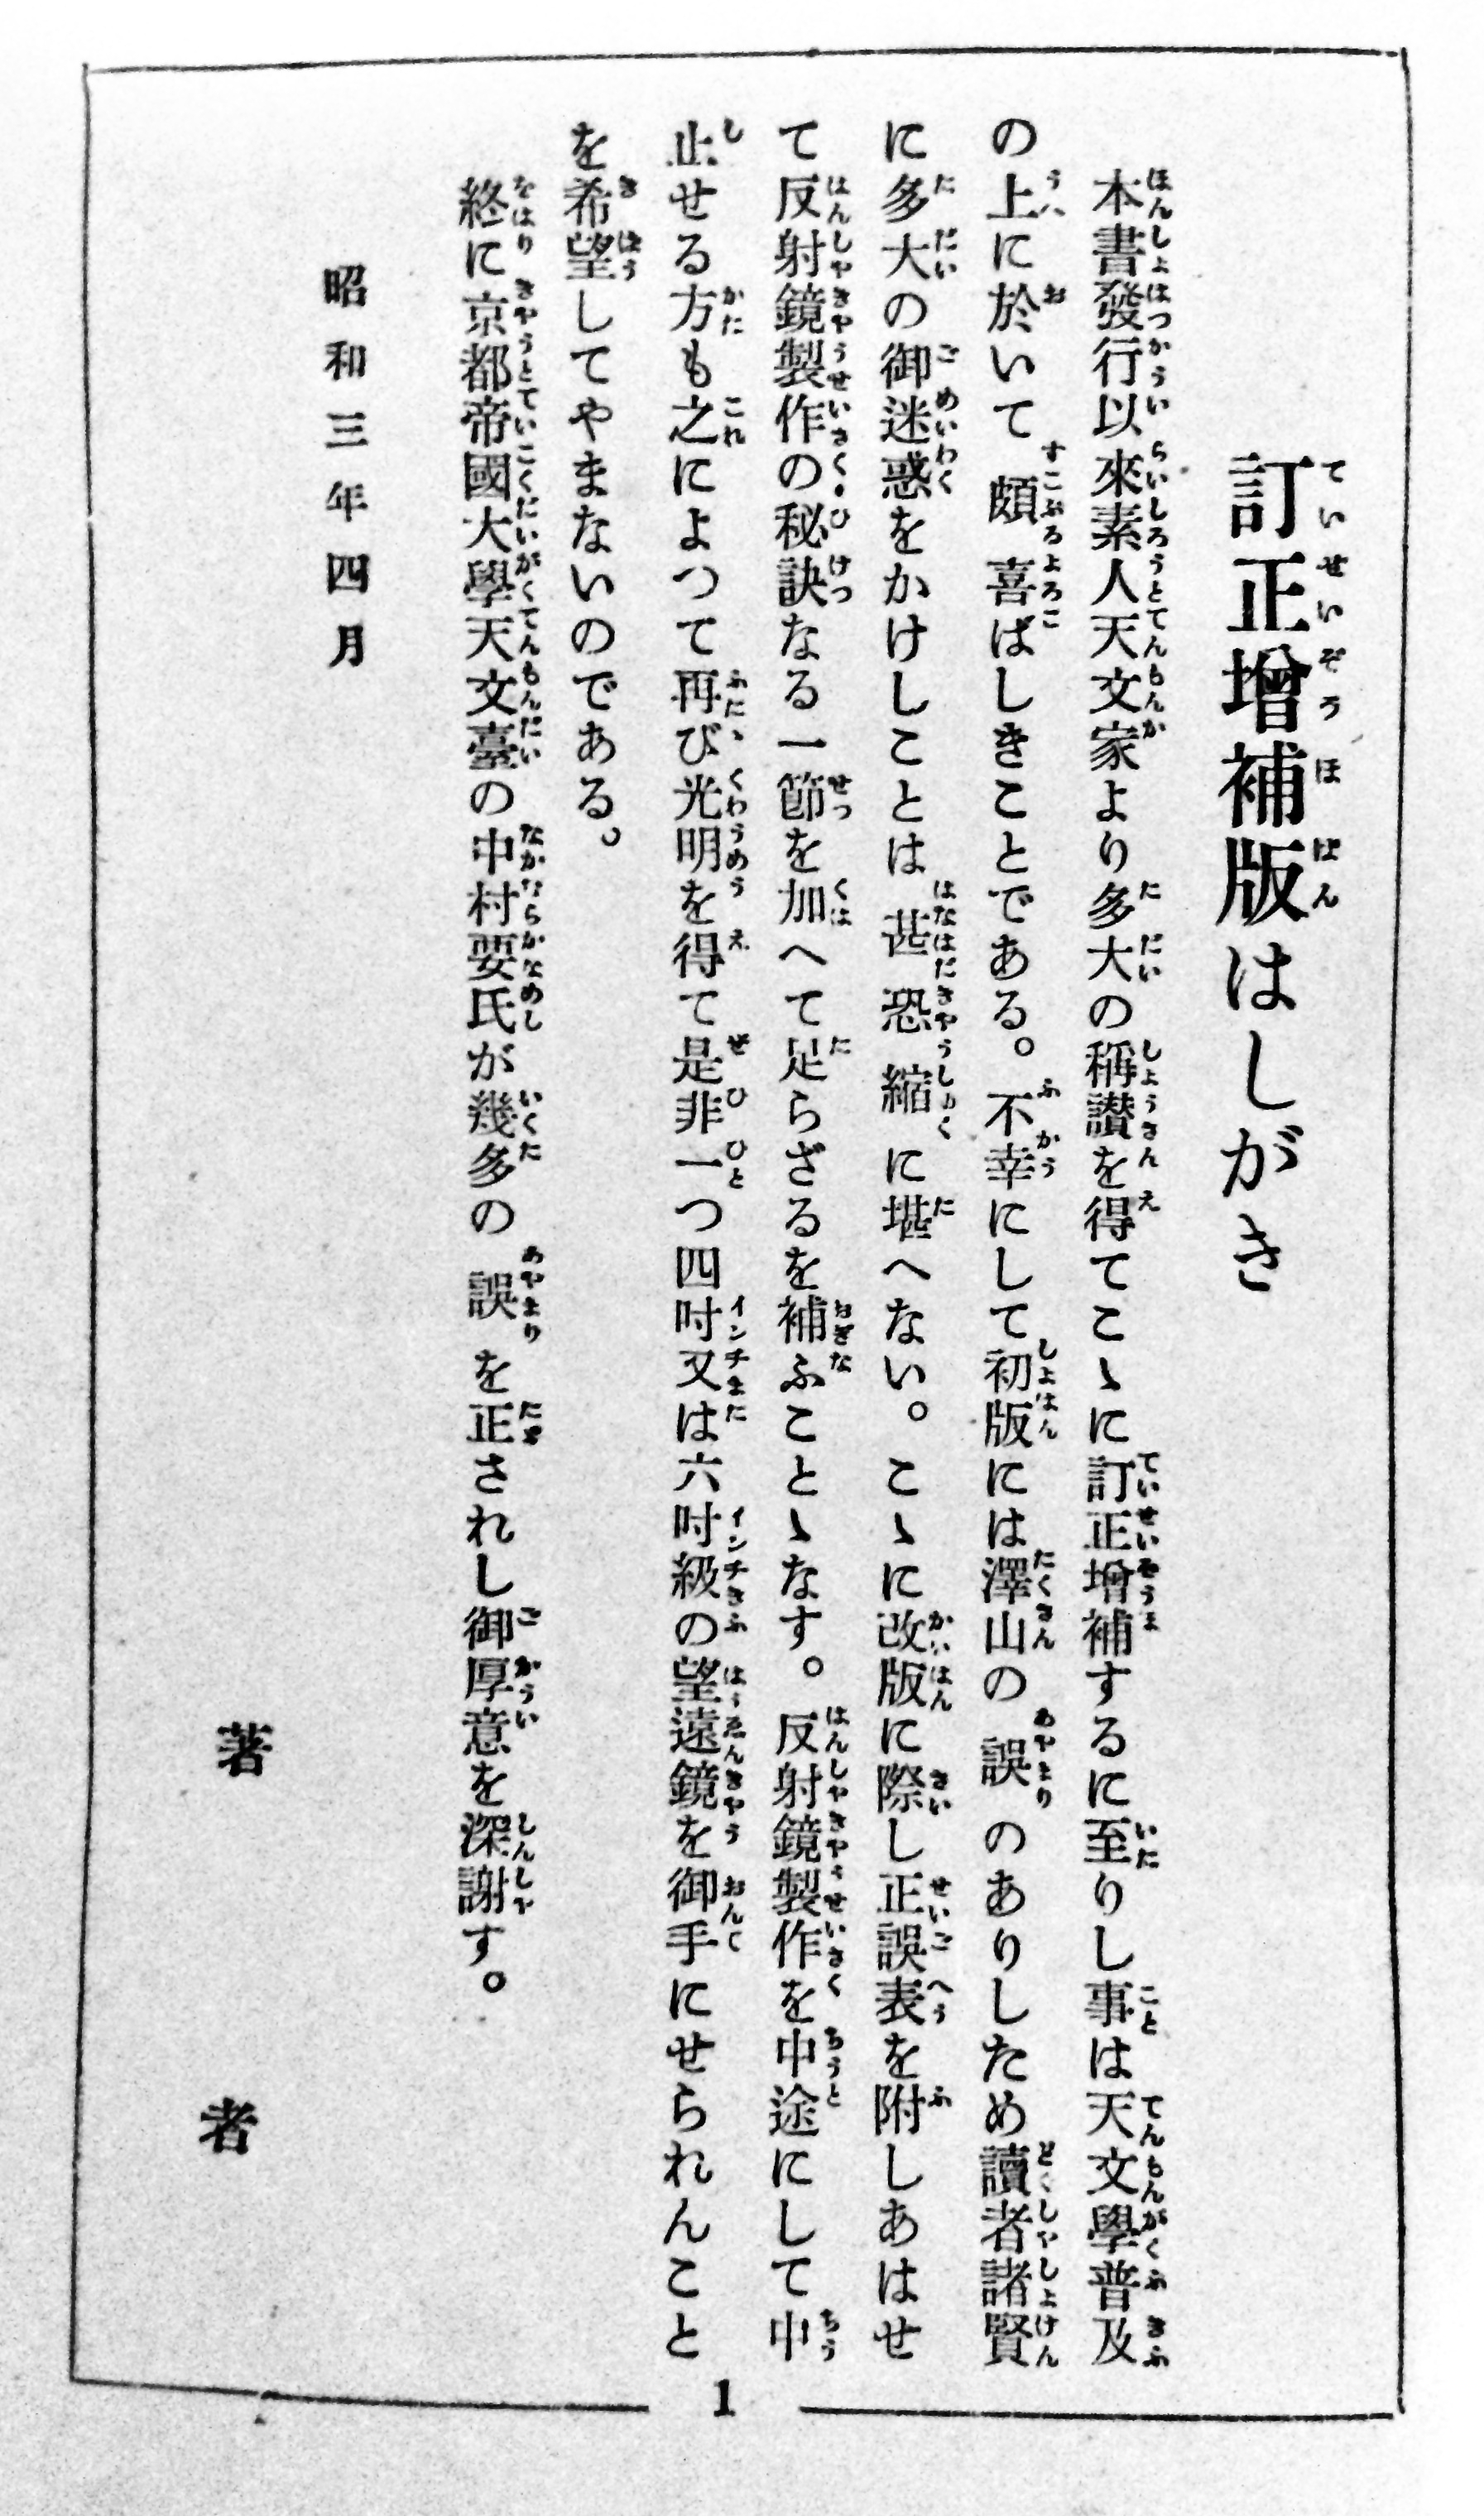 訂正增補版はしがき
本書發行以來素人天文家より多大の稱讃を得てこゝに訂正增補するに至りし事は天文學普及
の上に於いて頗喜ばしきことである。不幸にして初版には澤山の誤のありしため讀者諸賢
に多大の御迷惑をかけしことは甚恐縮に堪へない。こゝに改版に際し正誤表を附しあはせ
て反射鏡製作の秘訣なる一節を加へて足らざるを補ふことゝなす。反射鏡製作を中途にして中
止せる方も之によつて再び光明を得て是非一つ四吋又は六吋級の望遠鏡を御手にせられんこと
を希望してやまないのである。
終に京都帝國大學天文臺の中村要氏が幾多の誤を正されし御厚意を深謝す。
昭和三年四月
著者
1